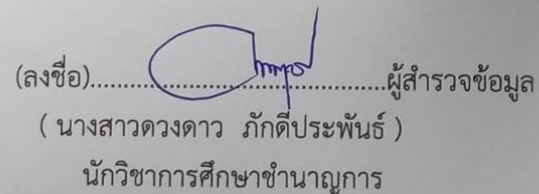 (ลงชื่อ)..........................................ผู้สำรวจข้อมูล
( นางสาวดวงดาว ภักดีประพันธ์ )
นักวิชาการศึกษาชำนาญการ